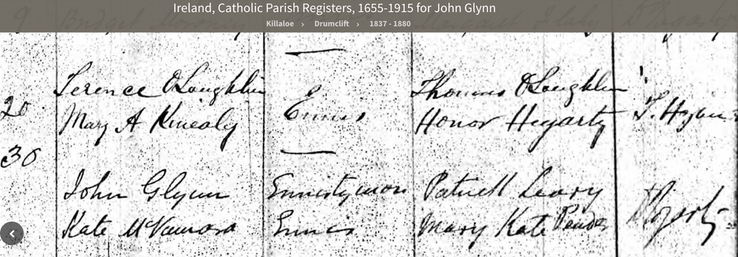 Ireland, Catholic Parish Registers, 1655-1915 for John Glynn
Killaloe ▸ Drumclift ▸ 1837 - 1880
Terence O'Loughlin Thomas O'Loughlin
20 Mary A Kinealy Ennis Honor Hegarty
30
John Glynn Ennistymon Patrick Leary
Kate McNamara Ennis Mary Kate